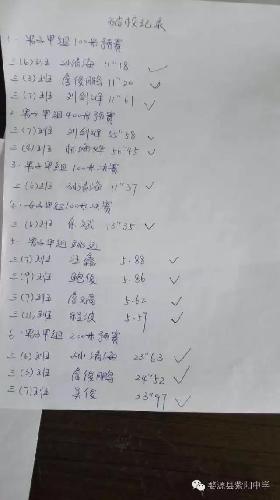 破校纪录
1. 男子甲组100米预赛
三(6)班 孙清海 11"18
三(3)班 詹俊鹏 11"20
三(7)班 刘剑雄 11"61
2. 男子甲组400米预赛
三(7)班 刘剑雄 55"58
三(4)班 56"45
3. 男子甲组100米决赛
三(6)班 孙清海 11"37
4. 女子甲组100米决赛
三(6)班 13"35
5. 男子甲组跳远
三(7)班 汪鑫 5.88
三(9)班 鲍俊 5.86
三(7)班 5.62
三(11)班 程波 5.57
6. 男子甲组200米预赛
三(6)班 孙清海 23"63
三(3)班 詹俊鹏 24"52
三(7)班 吴俊 23"97
婺源县紫阳中学